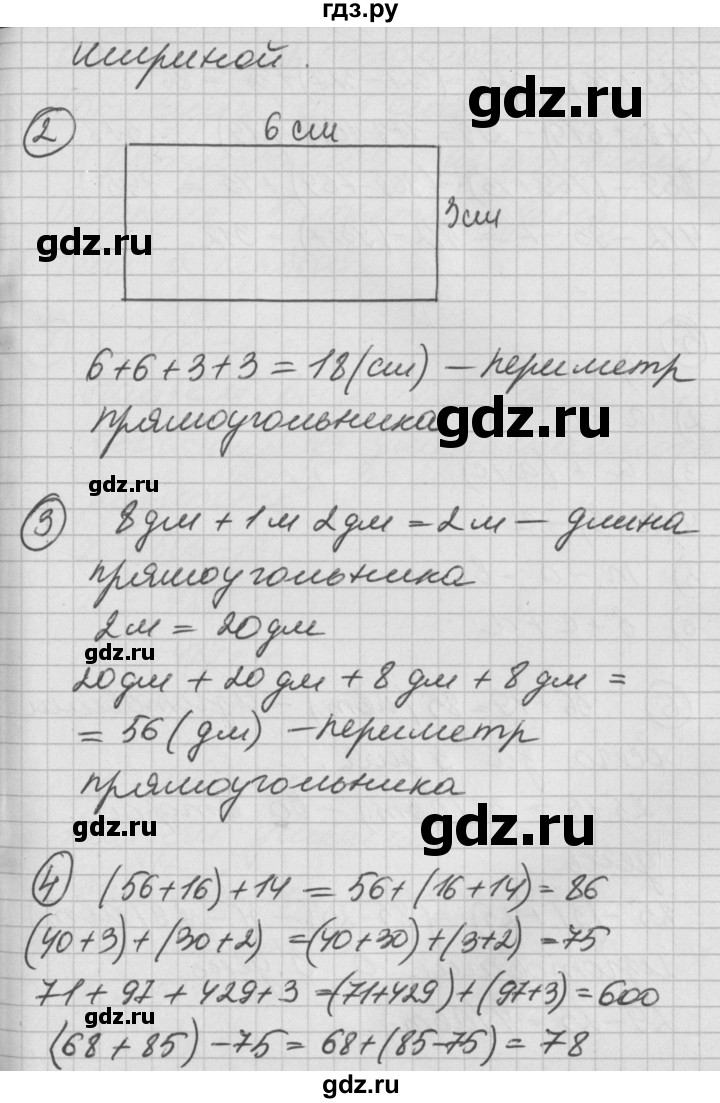 гдз.ру
шириной.
gdz.ru
2
6 см
3см
gdz.ru
6+6+3+3=18(см) – периметр
прямоугольника
gdz.ru
gdz.ru
3 8дм + 1м 2дм = 2м – длина
прямоугольника
2м = 20дм
gdz.ru
20дм + 20дм + 8дм + 8дм =
= 56 (дм) – периметр
прямоугольника
gdz.ru
gdz.ru
4 (56+16)+14 = 56+(16+14)=86
(40+3)+(30+2) =(40+30)+(3+2) =75
71+97+429+3=(71+429)+(97+3)=600
gdz.ru
(68+85)-75=68+(85-75)=78
gdz.ru